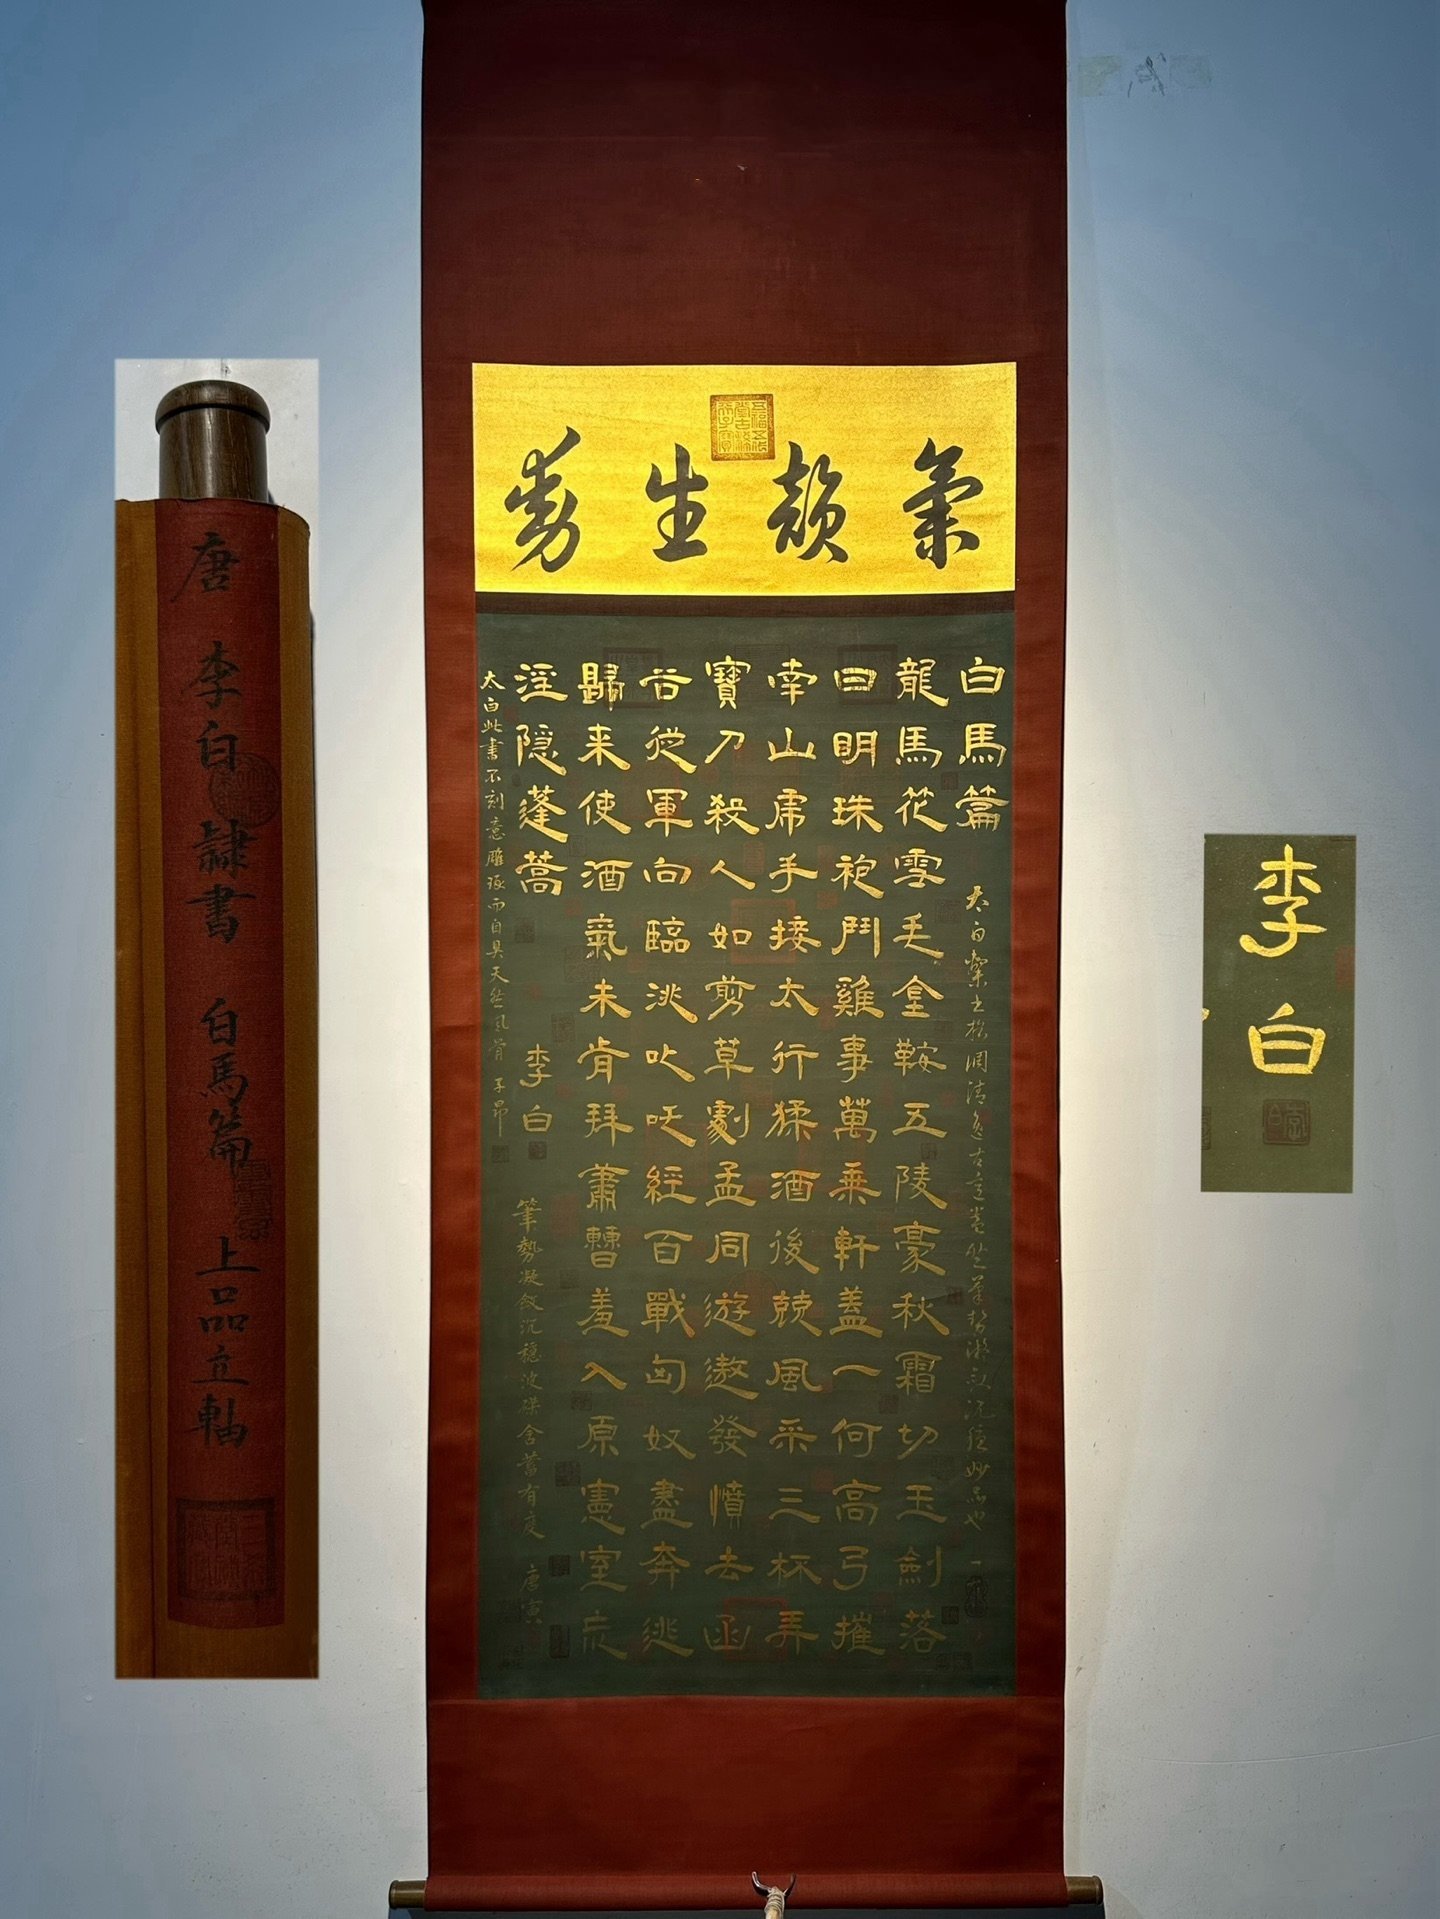 氣韻生動
白馬篇
太白隸書松潤清逸古意盎然筆勢凝斂沉穩妙品也
龍馬花雪毛金鞍五陵豪秋霜切玉劍落
日明珠袍鬥雞事萬乘軒蓋一何高弓摧
南山虎手接太行猱酒後競風采三杯弄
寶刀殺人如剪草劇孟同遊遨發憤去函
谷從軍向臨洮叱咤經百戰匈奴盡奔逃
歸来使酒氣未肯拜蕭曹羞入原憲室荒
淫隱蓬蒿
李白
筆勢凝斂沉穩波磔含蓄有度 唐寅
太白此書不刻意雕琢而自具天然風骨 子昂
唐 李白 隸書 白馬篇 上品立軸
李白